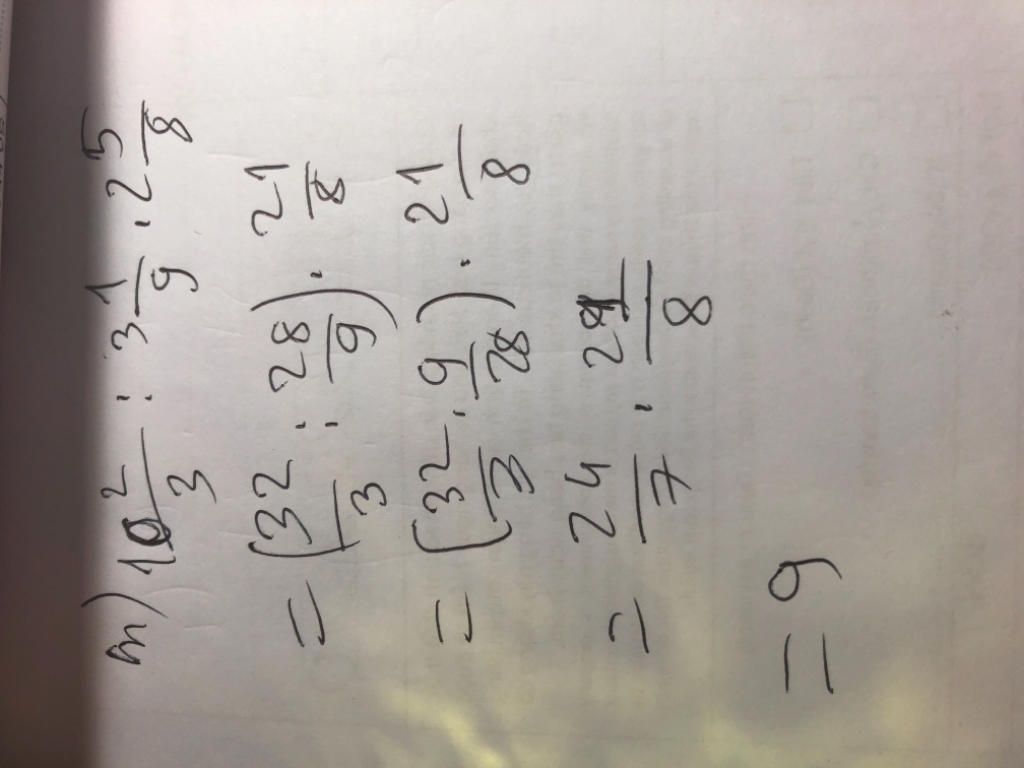 m) 10 2/3 : 3 1/9 · 2 5/8
= (32/3 : 28/9) · 21/8
= (32/3 · 9/28) · 21/8
= 24/7 · 21/8
= 9